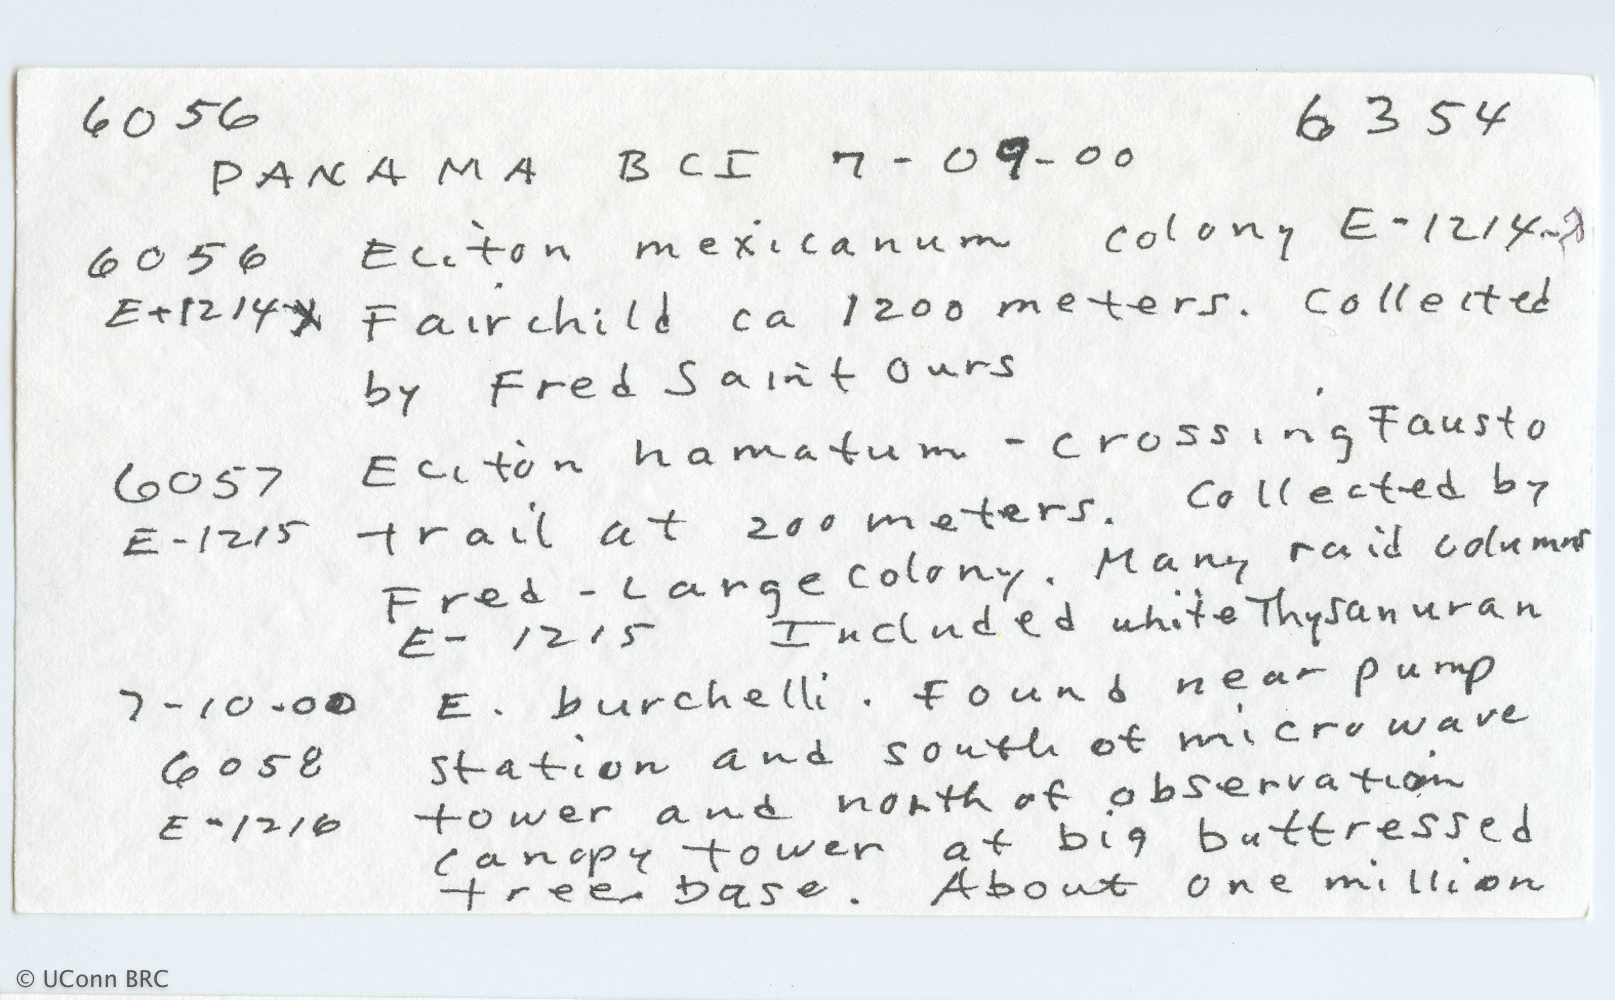 6056 6354
PANAMA BCI 7-09-00
6056 Eciton mexicanum colony E-1214
E-1214 Fairchild ca 1200 meters. Collected
by Fred Saint Ours
6057 Eciton hamatum - crossing Fausto
E-1215 trail at 200 meters. Collected by
Fred - Large colony. Many raid columns
E-1215 Included white Thysanuran
7-10-00 E. burchelli. Found near pump
6058 station and south of microwave
E-1216 tower and north of observation
canopy tower at big buttressed
tree base. About one million
© UConn BRC